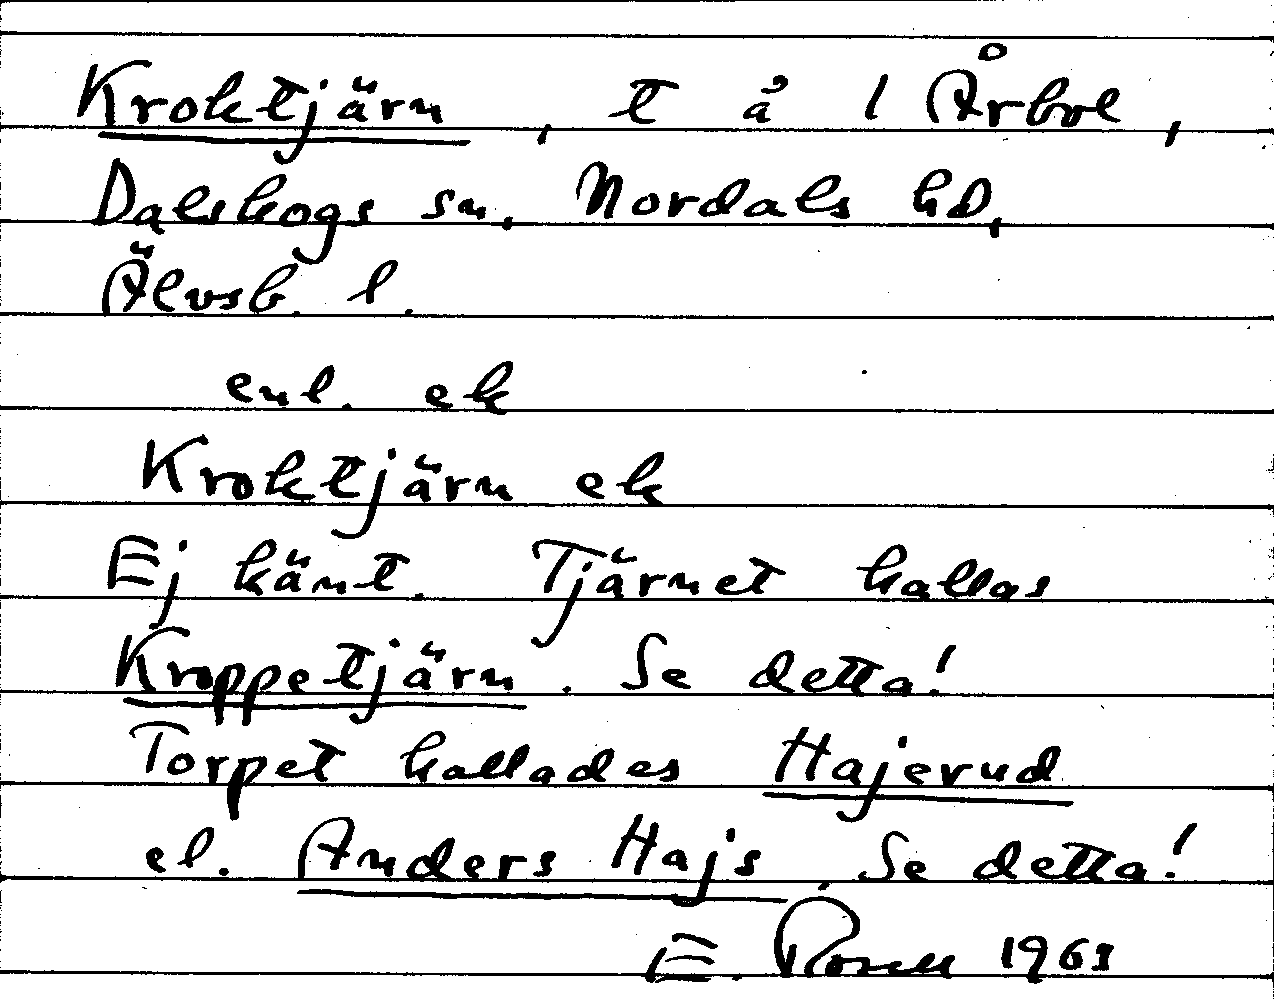 Kroktjärn, t å 1 Årbol,
Dalskogs sn, Nordals hd,
Älvsb. l.
enl. ek
Kroktjärn ek
Ej känt. Tjärnet kallas
Kroppetjärn. Se detta!
Torpet kallades Hajerud
el. Anders Hajs. Se detta!
E. Rosell 1961